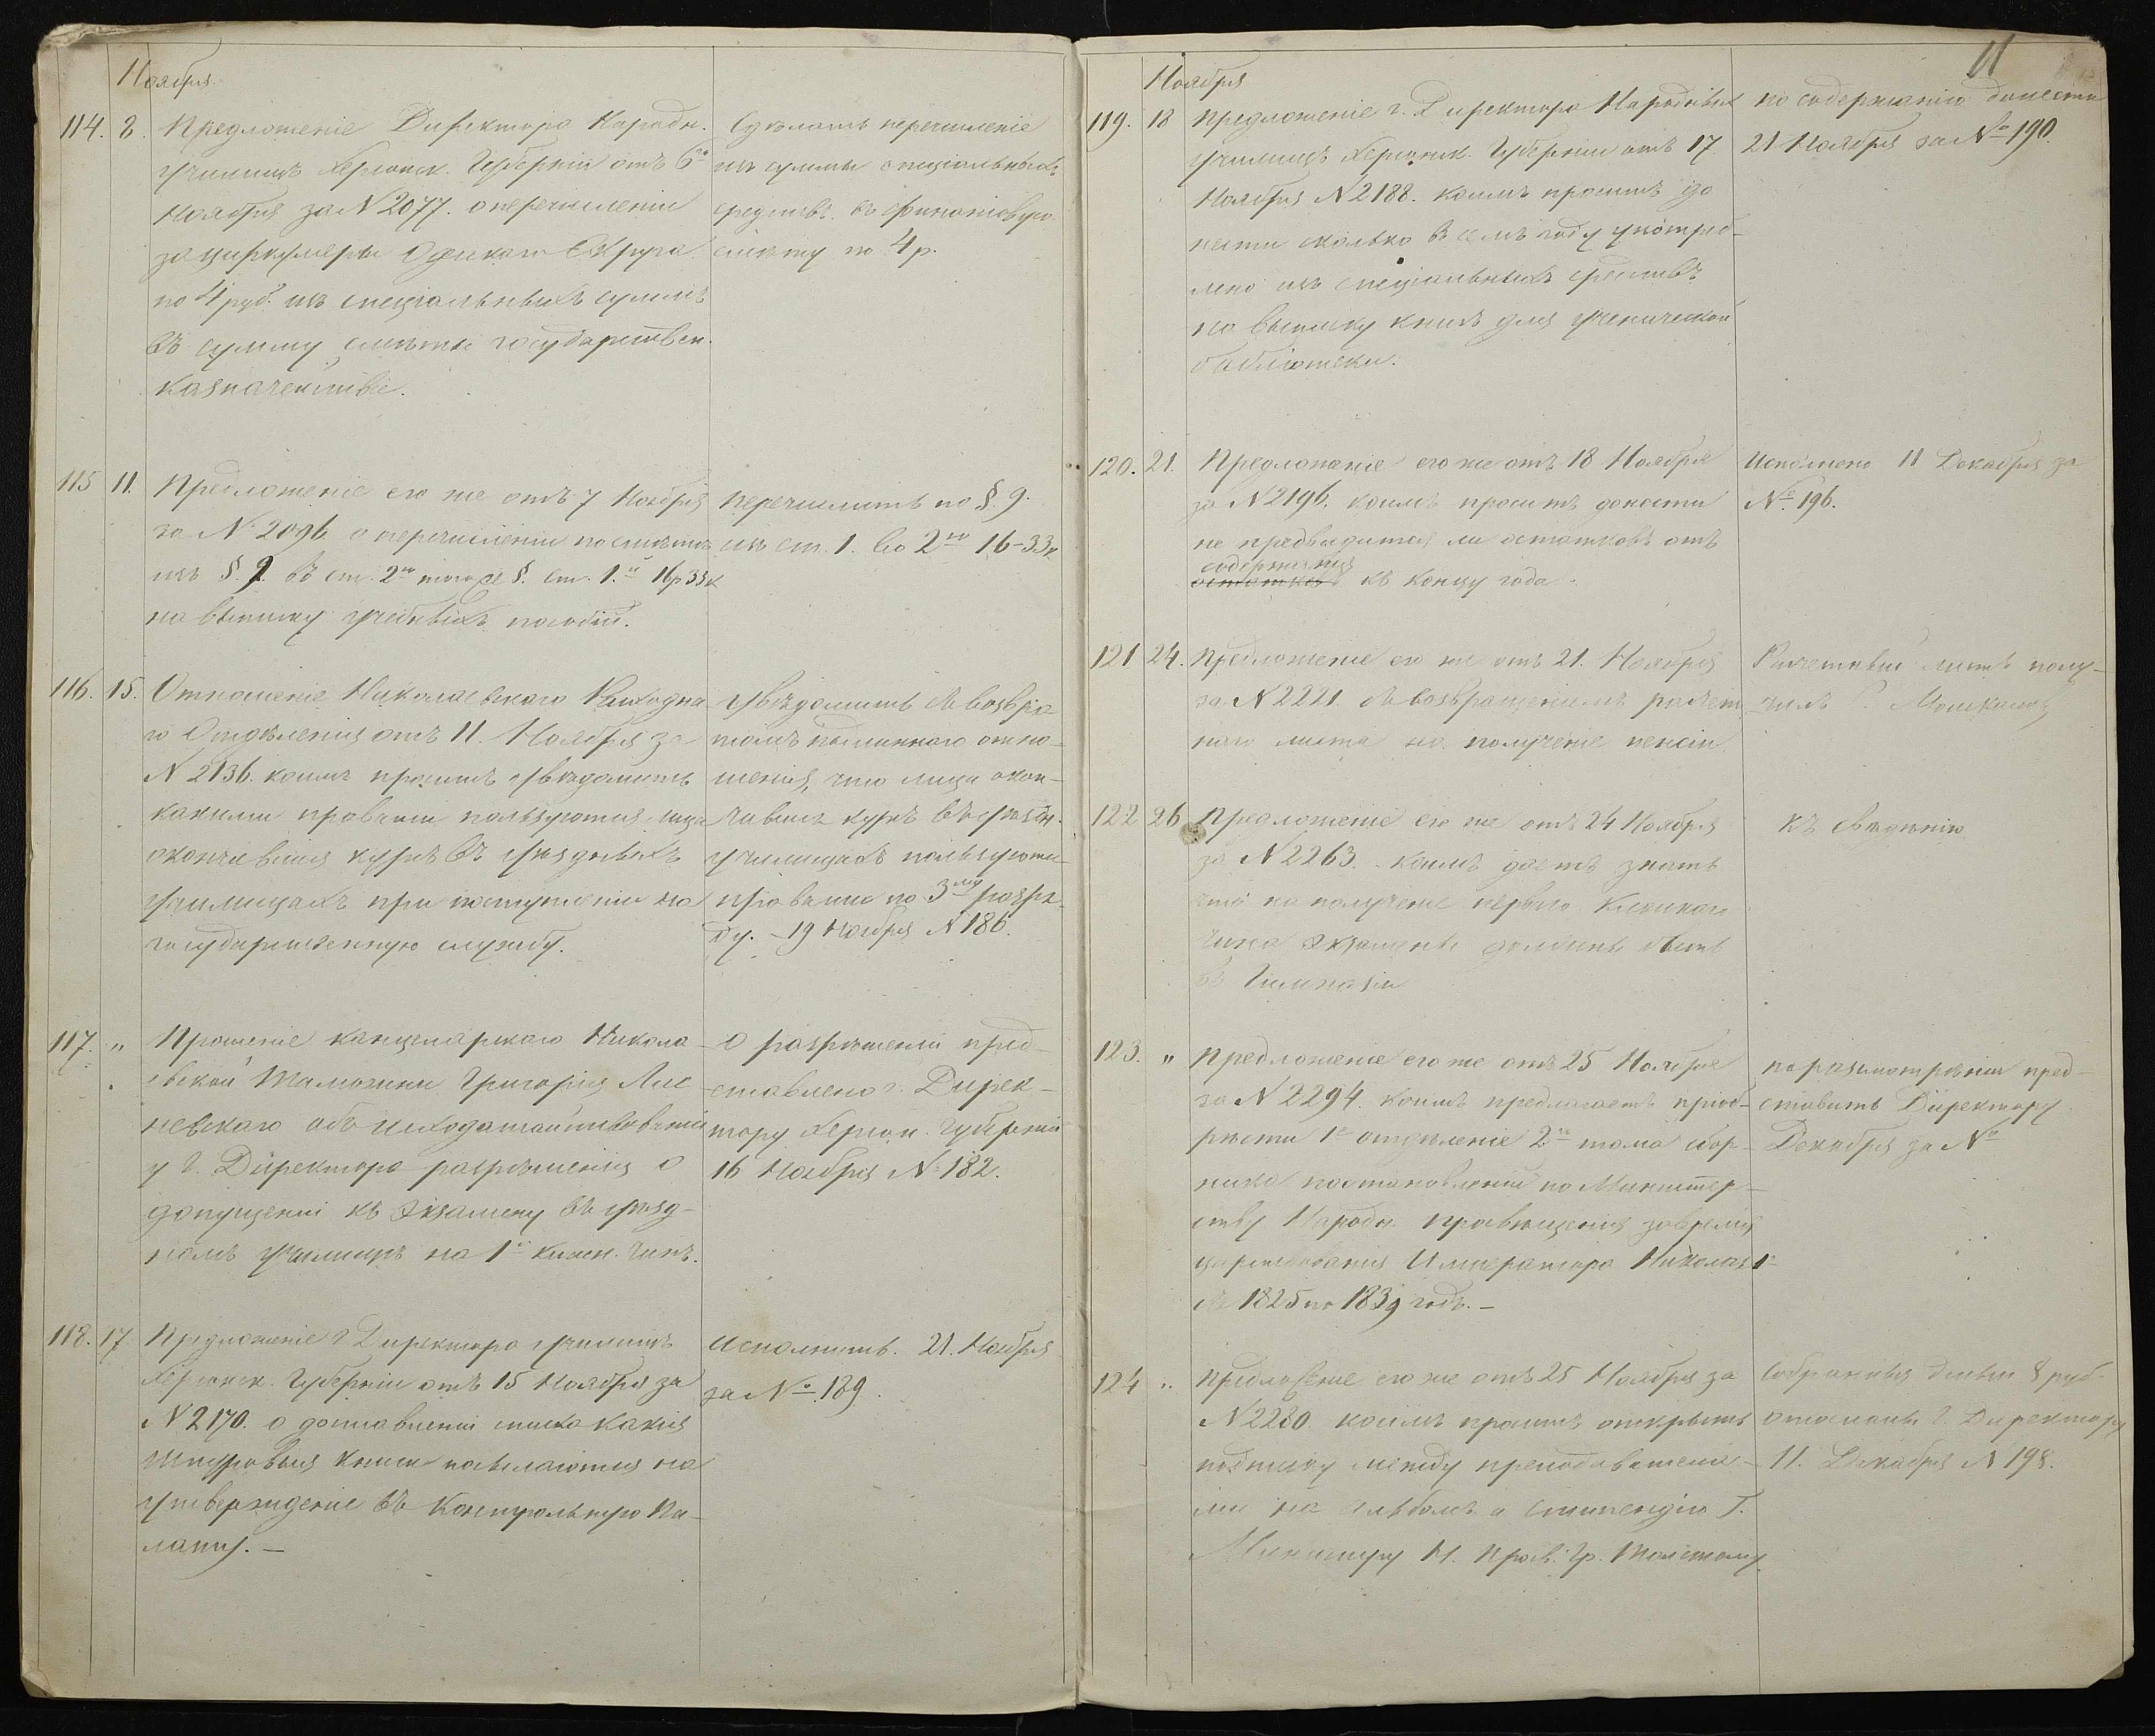 Ноября.
114. 8. Предложеніе Директора Народн.
училищъ Херсонск. Губерніи отъ 6го
Ноября за N 2077. о перечисленіи
за циркуляры Одескаго Округа
по 4 руб. изъ спеціальныхъ суммъ
въ сумму смѣты государствен.
казначействѣ.
Сдѣлать перечисленіе
изъ суммы спеціальныхъ
средствъ въ финансовую
смѣту по 4 р.
115 11. Предложеніе его же отъ 7 Ноября
за N 2096 о перечисленіи по смѣтѣ
изъ §. 9. въ ст. 2ю того же §. ст. 1.й 16 р 33 к
на выписку учебныхъ пособій.
Перечислить по §. 9.
изъ ст. 1. во 2ую 16-33 к
116. 15. Отношеніе Николаевскаго Расходна
го Отдѣленія отъ 11. Ноября за
N 2136. коимъ проситъ увѣдомить
какими правами пользуются лица
окончившія курсъ въ уѣздныхъ
училищахъ при поступленіи на
государственную службу.
Увѣдомить съ возвра
томъ подлиннаго отно-
шенія, что лица окон-
чившія курсъ въ уѣздн.
училищахъ пользуются
правами по 3му разря-
ду. - 19 Ноября N 186.
117. " Прошеніе канцелярскаго Никола-
евской Таможни Григорія
невскаго объ исходатайствованіи
у Г. Директора разрѣшенія о
допущеніи къ экзамену въ уѣзд-
номъ училищѣ на 1й класн. чинъ.
О разрѣшеніи пред-
ставлено г. Дирек-
тору Херсон. Губерніи
16 Ноября N 182.
118. 17. Предложеніе г Директора училищъ
Херсонск. Губерніи отъ 15 Ноября за
N 2170. о доставленіи списка какія
шнуровыя книги посылаются на
утвержденіе въ Контрольную Па-
лату. —
Исполнить. 21. Ноября
за № 189.
11
Ноября
119. 18 Предложеніе г. Директора Народныхъ
училищъ Херсонск. Губерніи отъ 17
Ноября N 2188. коимъ проситъ до
нести сколько въ семъ году употреб-
лено изъ спеціальныхъ средствъ
на выписку книгъ для ученической
библіотеки.
По содержанію донести
21 Ноября за № 190.
120. 21. Предложеніе его же отъ 18 Ноября
за N 2196. коимъ проситъ донести
не предвидится ли остатковъ отъ
содержанія
остатка къ концу года.
Исполнено 11 Декабря за
№ 196.
121 24. Предложеніе его же отъ 21. Ноября
за N 2221 съ возвращеніемъ расчет
наго листа на полученіе пенсіи
Расчетный листъ полу-
чилъ Г.
122 26 Предложеніе его же отъ 24 Ноября
за N 2263. коимъ даетъ знать
что на полученіе перваго Класнаго
чина экзаменъ долженъ быть
въ Гимназіи
Къ свѣденію
123. " Предложеніе его же отъ 25 Ноября
за N 2294. коимъ предлагаетъ пріоб-
рѣсти 1е отдѣленіе 2го тома сбор-
ника постановленій по Министер-
ству Народн. просвѣщенія за время
царствованія Императора Николая 1го
съ 1825 по 1839 годъ. —
По разсмотрѣніи пред-
ставить Директору
Декабря за №
124 " Предложеніе его же отъ 25 Ноября за
N 2280. коимъ проситъ открыть
подписку между преподавателя-
ми на альбомъ и стипендію Г.
Министру Н. Просв. Гр. Толстому.
Собранныя деньги 8 руб.
отосланы Г. Директору
11. Декабря N 198.